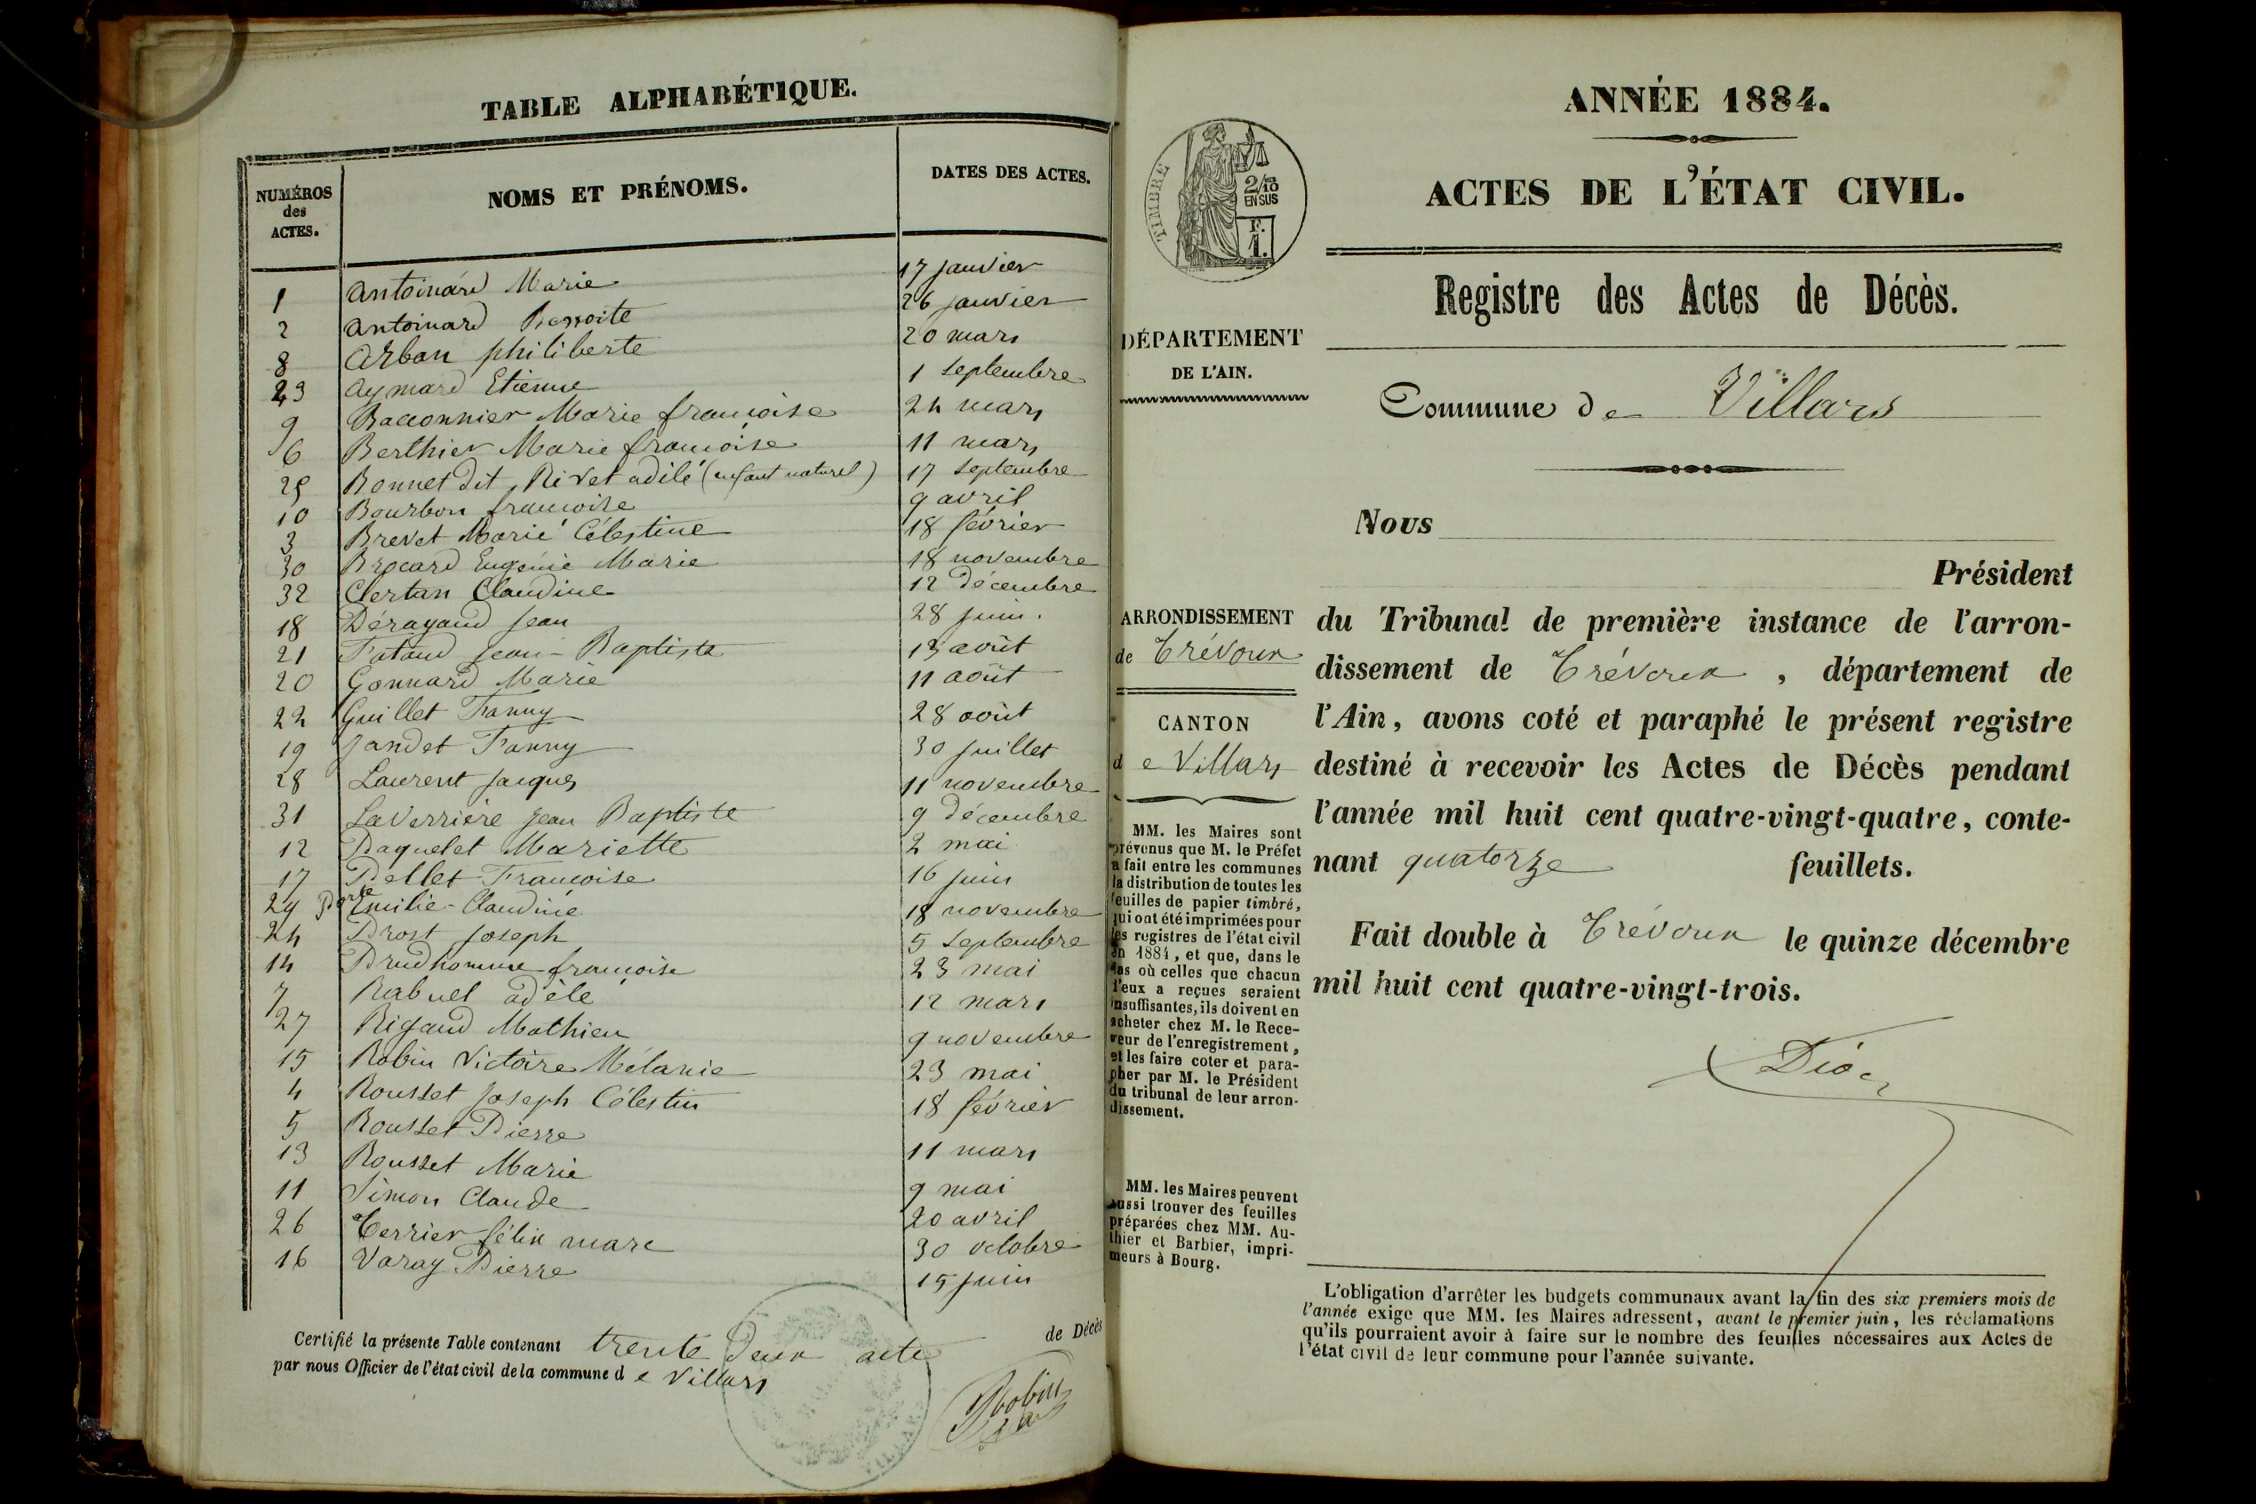 TABLE ALPHABÉTIQUE.
NUMÉROS des ACTES. NOMS ET PRÉNOMS. DATES DES ACTES.
1 Antoinard Marie 17 janvier
2 Antoinard 26 janvier
8 Arban philiberte 20 mars
23 Aymard Etienne 1 septembre
9 Bacconnier Marie françoise 24 mars
6 Berthier Marie françoise 11 mars
25 Bonnet dit Rivet adèle (enfant naturel) 17 septembre
10 Bourbon françoise 9 avril
3 Brevet Marie Célestine 18 février
30 Brocard Eugénie Marie 18 novembre
32 Clertan Claudine 12 décembre
18 Dérayaud Jean 28 juin.
21 Fataud Jean-Baptiste 13 août
20 Gonnard Marie 11 août
22 Guillet Fanny 28 août
19 Jandet Fanny 30 juillet
28 Laurent Jacques 11 novembre
31 Laverrière Jean Baptiste 9 décembre
12 Paquelet Mariette 2 mai
17 Pellet Françoise 16 juin
29 Emilie-Claudine 18 novembre
24 Prost Joseph 5 septembre
14 Prudhomme françoise 23 mai
7 Rabuel adèle 12 mars
27 Rigaud Mathieu 9 novembre
15 Robin Victoire Mélanie 23 mai
4 Rousset Joseph Célestin 18 février
5 Rousset Pierre 11 mars
13 Rousset Marie 9 mai
11 Simon Claude 20 avril
26 Terrier félix marc 30 octobre
16 Varay Pierre 15 juin
Certifié la présente Table contenant trente deux acte de Décès
par nous Officier de l'état civil de la commune de Villars
Robin
TIMBRE
2/10
EN SUS
F.
1.
DÉPARTEMENT
DE L'AIN.
ARRONDISSEMENT
de Trévoux
CANTON
de Villars
MM. les Maires sont
prévenus que M. le Préfet
a fait entre les communes
la distribution de toutes les
feuilles de papier timbré,
qui ont été imprimées pour
les registres de l'état civil
en 1884, et que, dans le
cas où celles que chacun
d'eux a reçues seraient
insuffisantes, ils doivent en
acheter chez M. le Rece-
veur de l'enregistrement,
et les faire coter et para-
pher par M. le Président
du tribunal de leur arron-
dissement.
MM. les Maires peuvent
aussi trouver des feuilles
préparées chez MM. Au-
thier et Barbier, impri-
meurs à Bourg.
ANNÉE 1884.
ACTES DE L'ÉTAT CIVIL.
Registre des Actes de Décès.
Commune de Villars
Nous
Président
du Tribunal de première instance de l'arron-
dissement de Trévoux, département de
l'Ain, avons coté et paraphé le présent registre
destiné à recevoir les Actes de Décès pendant
l'année mil huit cent quatre-vingt-quatre, conte-
nant quatorze feuillets.
Fait double à Trévoux le quinze décembre
mil huit cent quatre-vingt-trois.
L'obligation d'arrêter les budgets communaux avant la fin des six premiers mois de
l'année exige que MM. les Maires adressent, avant le premier juin, les réclamations
qu'ils pourraient avoir à faire sur le nombre des feuilles nécessaires aux Actes de
l'état civil de leur commune pour l'année suivante.